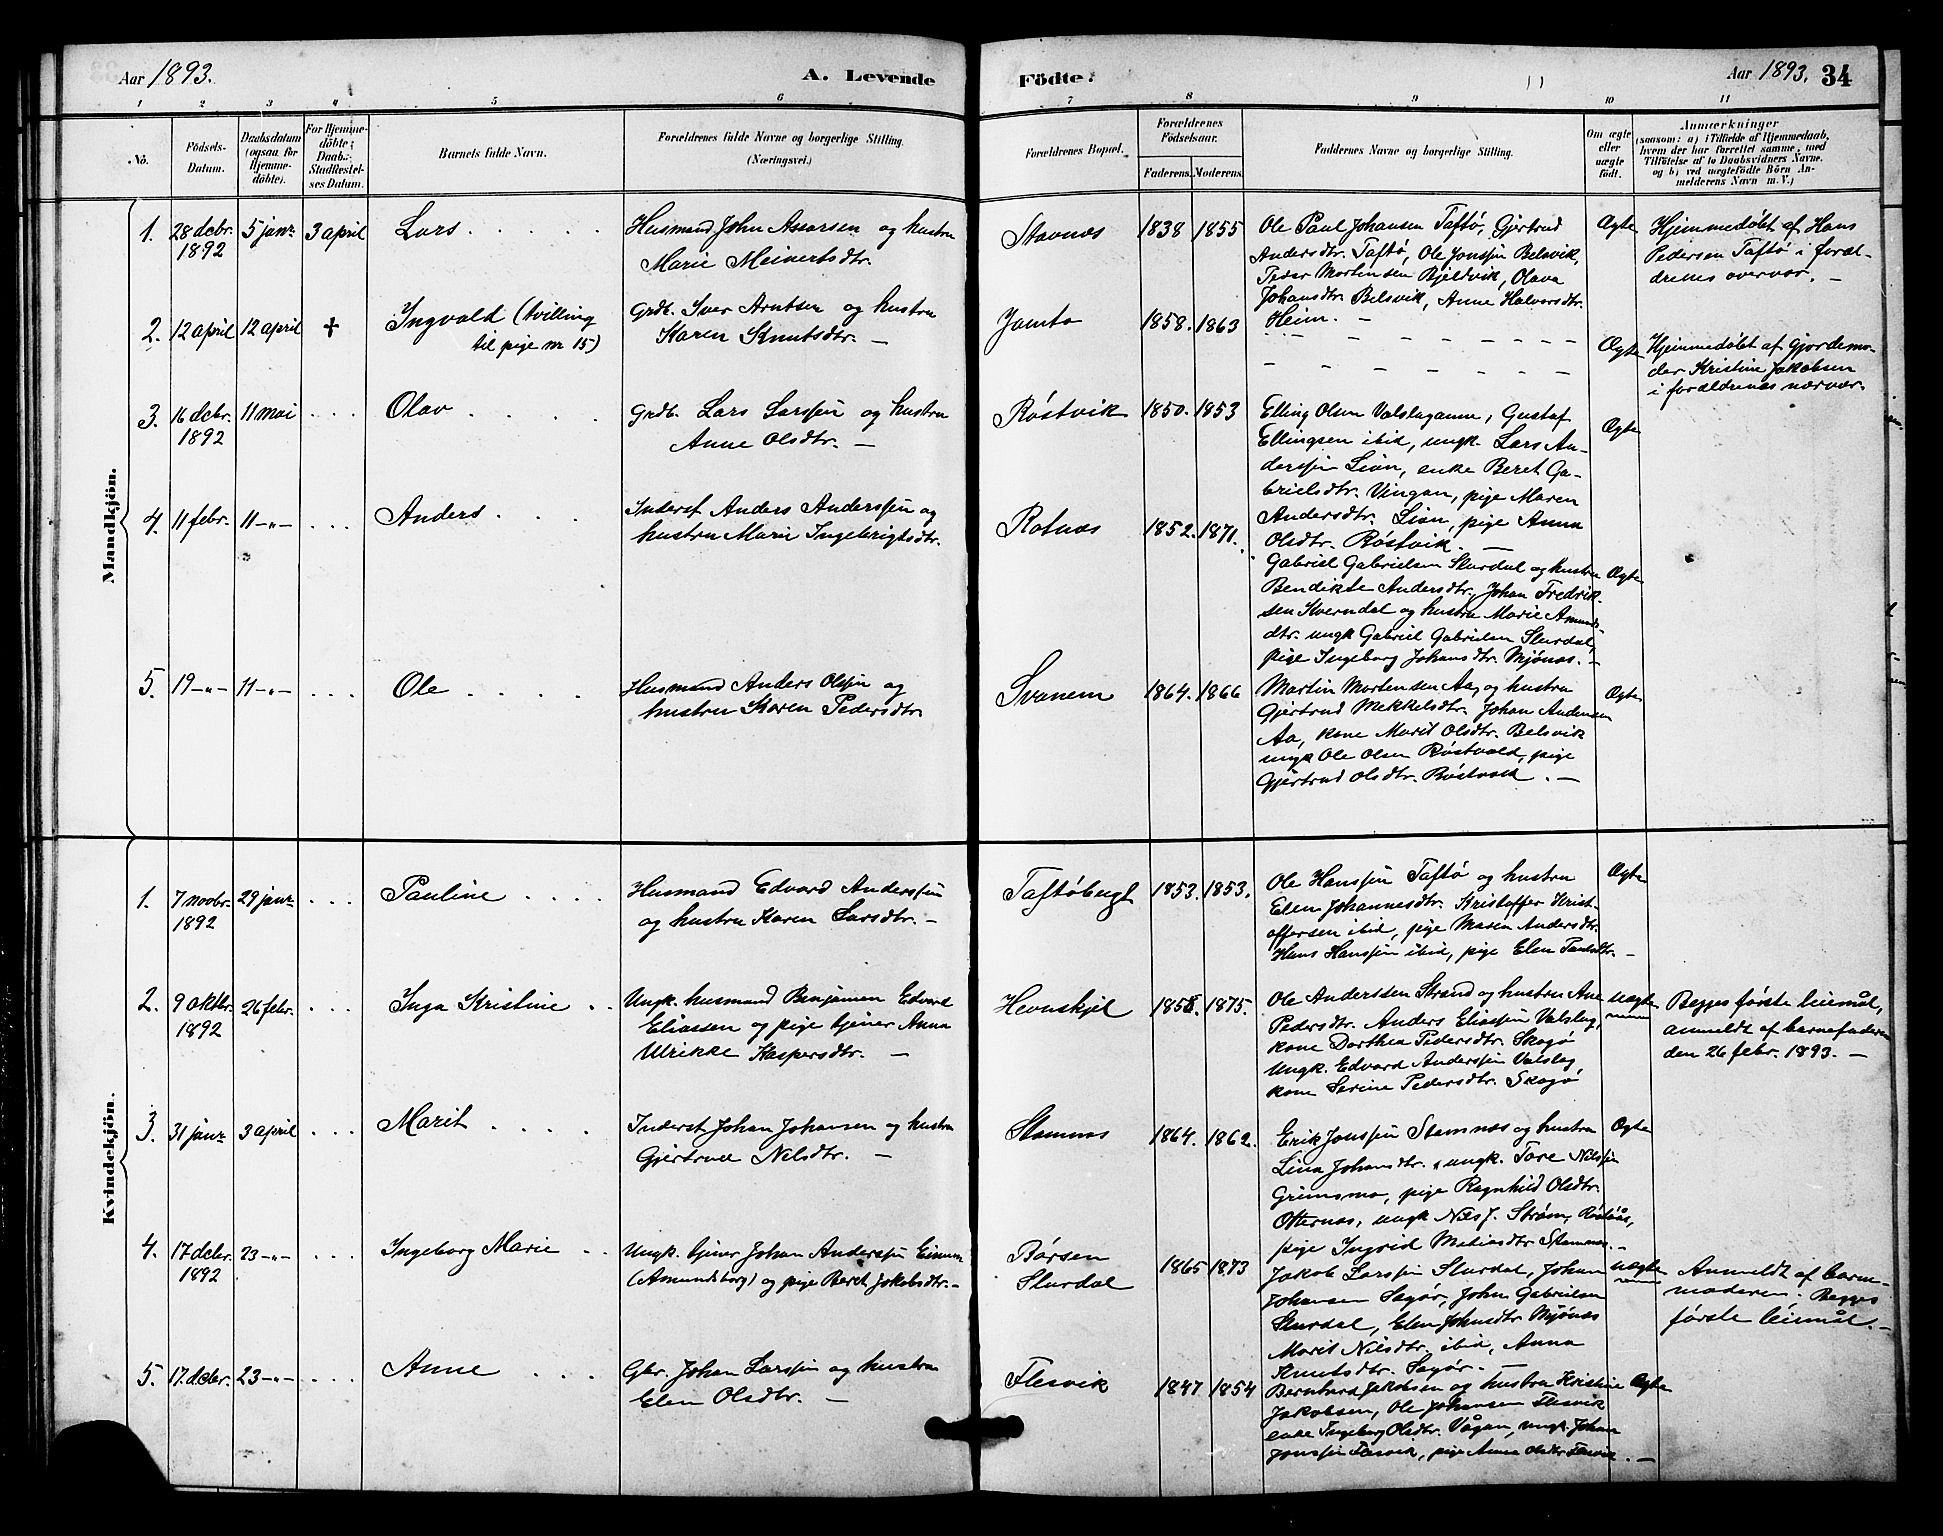 Aar 1893.
A. Levende
Födte.
11
Aar 1893. 34
1 2 3 4 5 6 7 8 9 10 11
No.
Födsels-
Datum.
Daabsdatum
(ogsaa for
Hjemme-
döbte).
For Hjemme-
döbte;
Daab.:
Stadfæstel-
ses Datum.
Barnets fulde Navn.
Forældrenes fulde Navne og borgerlige Stilling.
(Næringsvei.)
Forældrenes Bopæl.
Forældrenes
Födselsaar.
Faderens. Moderens.
Faddernes Navne og borgerlige Stilling.
Om ægte
eller
uægte
födt.
Anmærkninger
(saasom: a) i Tilfælde af Hjemmedaab,
hvem der har forrettet samme, med
Tilföielse af to Daabsvidners Navne.
og b) ved uægtefödte Börn An-
melderens Navn m. V.)
Mandkjön.
1. 28 debr. 5 janr. 3 april Lars
1892
Husmand John Assorsen og hustru
Marie Meinertsdtr.
Stavnæs 1838 1855
Ole Paul Johansen Taftø, Gjertrud
Andersdtr. Taftø, Ole Jonssen Belsvik,
Peder Mortensen Bjeldvik, Olava
Johansdtr. Belsvik, Anne Halvorsdtr.
Heim. —
Ægte
Hjemmedøbt af Hans
Pedersen Taftø i foræl-
drenes overvær. —
2. 12 april 12 april + Ingvald (tvilling
til pige nr 15)
Grdb. Iver Arntsen og hustru
Karen Knutsdtr. —
Jamto 1858. 1863
Ægte
Hjemmedøbt af Gjordemo-
der Kristine Jakobsen
i forældrenes nærvær.
3. 16 debr. 11 mai Olav
1892
Grdb. Lars Larssen og hustru
Anne Olsdtr. —
Røstvik 1850. 1853
Elling Olsen Valslaganne, Gustaf
Ellingsen ibid, ungk. Lars An-
derssen Lian, enke Beret Ga-
brielsdtr. Vingan, pige Maren
Andersdtr. Lian, pige Anna
Olsdtr. Røstvik. —
Ægte
4. 11 febr. 11 -"- Anders
Inderst Anders Anderssen og
hustru Marie Ingebrigtsdtr.
Rotnæs 1852. 1871.
Gabriel Gabrielsen Slurdal og hustru
Bendikte Andersdtr., Johan Fredrik-
sen Kverndal og hustru Marie Amunds-
dtr. ungk Gabriel Gabrielsen Slurdal,
pige Ingeborg Johansdtr. Mjønes. —
Ægte
5. 19 -"- 11 -"- Ole
Husmand Anders Olssen og
hustru Karen Pedersdtr.
Svanem 1864. 1866
Martin Mortensen Aa, og hustru
Gjertrud Mekkelsdtr. Johan Andersen
Aa, kone Marit Olsdtr. Belsvik
ungk Ole Olsen Røstvold, pige
Gjertrud Olsdtr. Røstvik. —
Ægte
Kvindekjön.
1. 7 novbr. 29 janr Pauline
1892
Husmand Edvard Anderssen
og hustru Karen Larsdtr. —
Taftøbugt 1853. 1853.
Ole Hanssen Taftø og hustru
Elen Johannesdtr. Kristoffer Krist-
offersen ibid, pige Maren Andersdtr.
Hans Hanssen ibid, pige Elen Paulsdtr. —
Ægte
2. 9 oktbr. 26 febr. Inga Kristine
1892
Ungk. husmand Benjamin Edvard
Eliassen og pige tjener Anna
Ulrikke Kaspersdtr. —
Hevnskjel 1858. 1875.
Ole Anderssen Strand og hustru Ane
Pedersdtr. Anders Eliassen Valslag,
kone Dorthea Pedersdtr. Skogø
Ungk. Edvard Anderssen Valslag
kone Serine Pedersdtr. Skogø
Uægte
Begges første leiemål,
anmeldt af barnefaderen
den 26 febr. 1893. —
3. 31 janr 3 april Marit
Inderst Johan Johansen og hustru
Gjertrud Nelsdtr. —
Stamnæs 1864. 1862.
Erik Jonssen Stamnæs og hustru
Lina Johansdtr., ungk. Tore Nilssen
Grimsmo, pige Ragnhild Olsdtr.
Otternæs, ungk Nils J. Strøm, Røstøs,
pige Ingrid Matiasdtr Stamnæs. —
Ægte
4. 17 debr. 23 -"- Ingeborg Marie
1892
Ungk. tjener Johan Anderssen Einum
(Amundsborg) og pige Beret Jakobsdtr. —
Børsen
Slurdal 1865 1873
Jakob Larssen Slurdal, Johan
Johansen Sagør, John Gabrielsen
Slurdal, Elen Johnsdtr Mjønæs
Marit Nilsdtr. ibid, Anna
Knutsdtr. Sagør. —
Uægte
Anmeldt af barne-
moderen. Begges
første leiemål. —
5. 17. debr. 23 -"- Anne
Gbr. Johan Larssen og hustru
Elen Olsdtr. —
Flesvik 1847 1854
Bernhard Jakobsen og hustru Kristine
Jakobsen, Ole Johansen Flesvik
enke Ingeborg Olsdtr. Vågan, ungk. Johan
Jonssen Flesvik, pige Anna Olsdtr Flesvik. —
Ægte